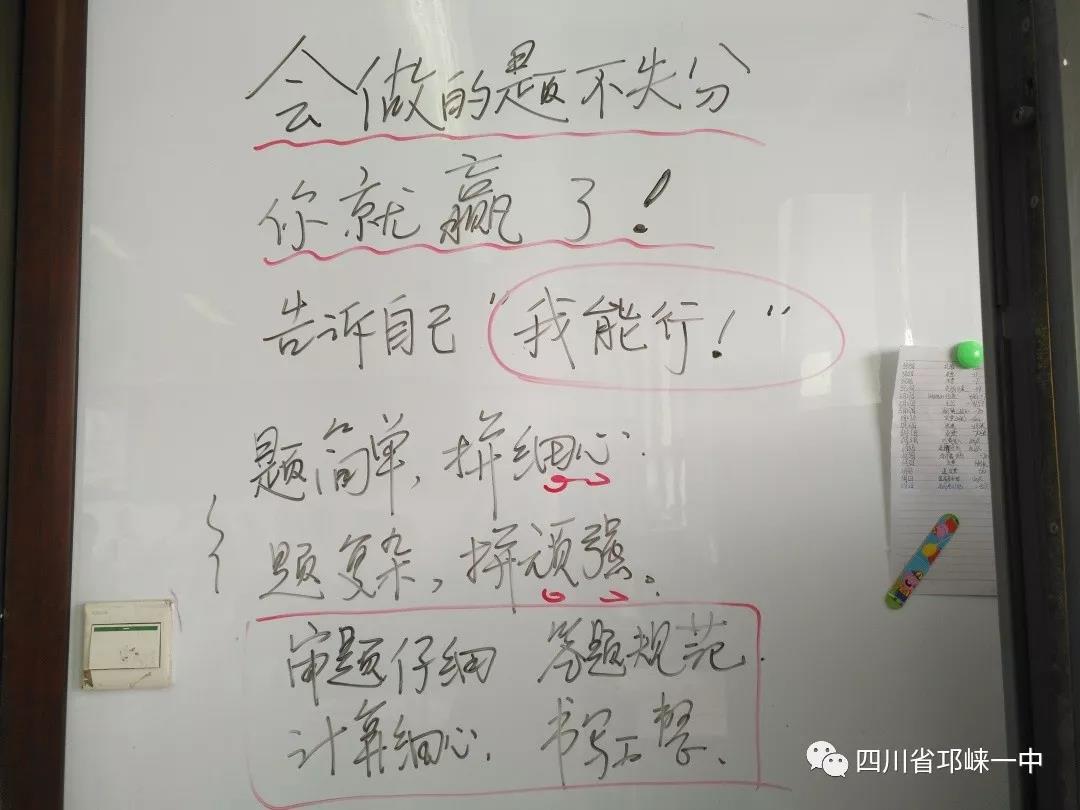 会做的题不失分
你就赢了！
告诉自己“我能行！”
题简单，拼细心.
题复杂，拼顽强。
审题仔细 答题规范.
计算细心. 书写工整、
四川省邛崃一中